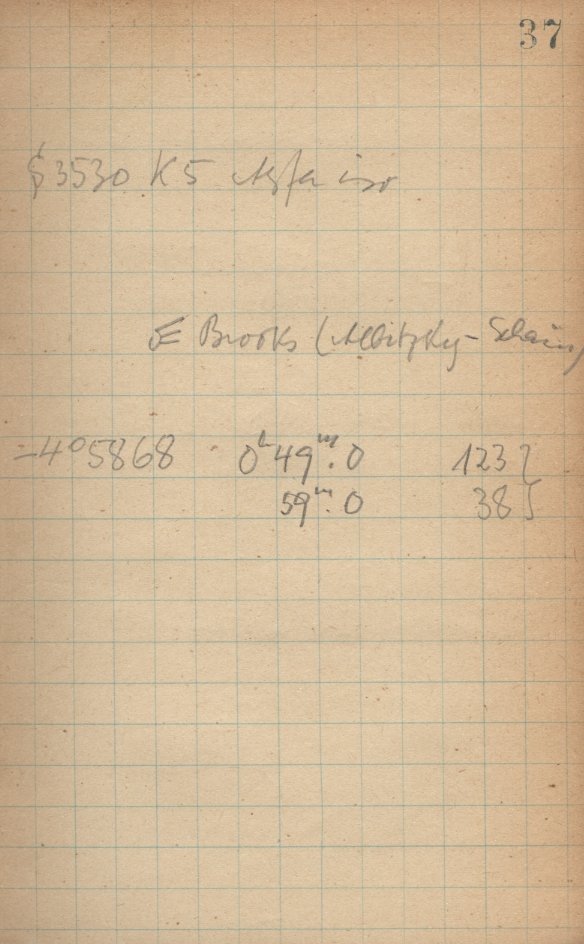 37
3530 K5 Agfa iso
Brooks (Albitzky-Schain)
-4°5868 0ʰ49ᵐ.0 123
59ᵐ.0 38